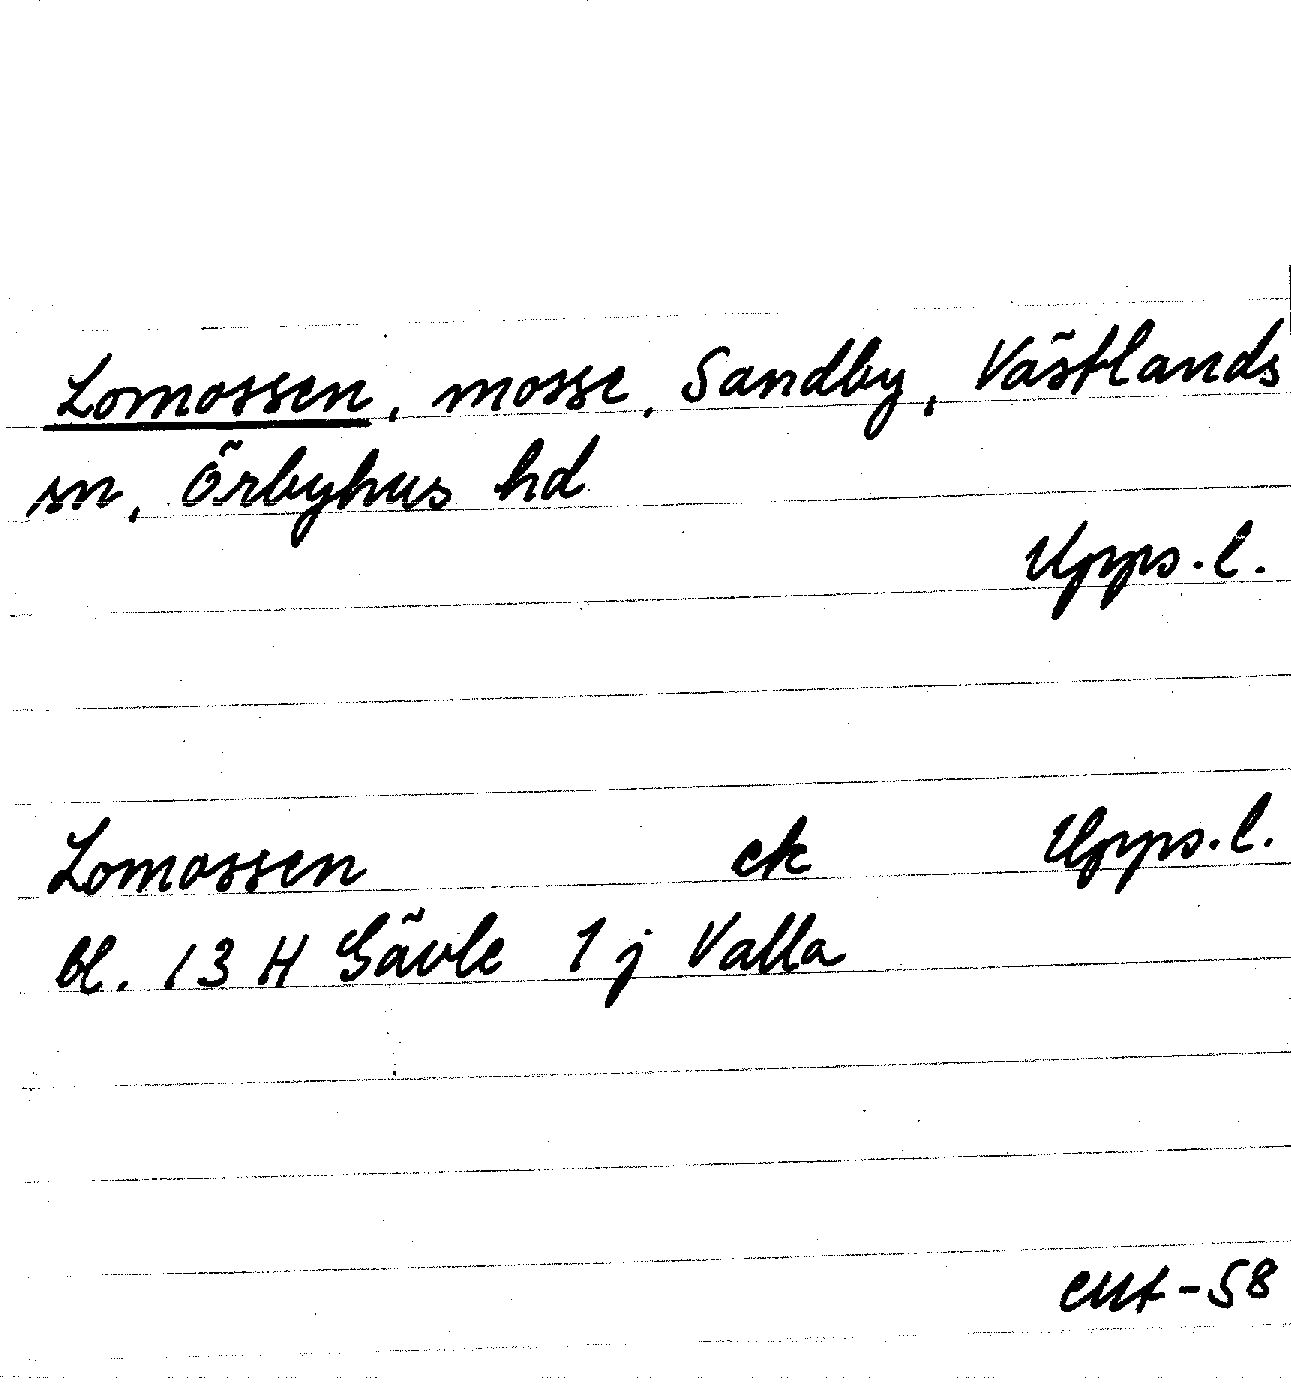 Lomossen, mosse, Sandby, Västlands
sn, Örbyhus hd
Upps. l.
Lomossen ek Upps. l.
bl. 13 H Gävle 1 j Valla
-58